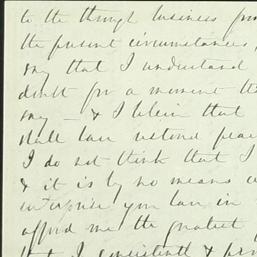 to the though business from
the present circumstances,
say that I understand
doubt for a moment th
say — & I believe that
shall have restored peace
I do not think that I
& it is by no means c
enterprise you have in
afford me the greatest
that I consistently &